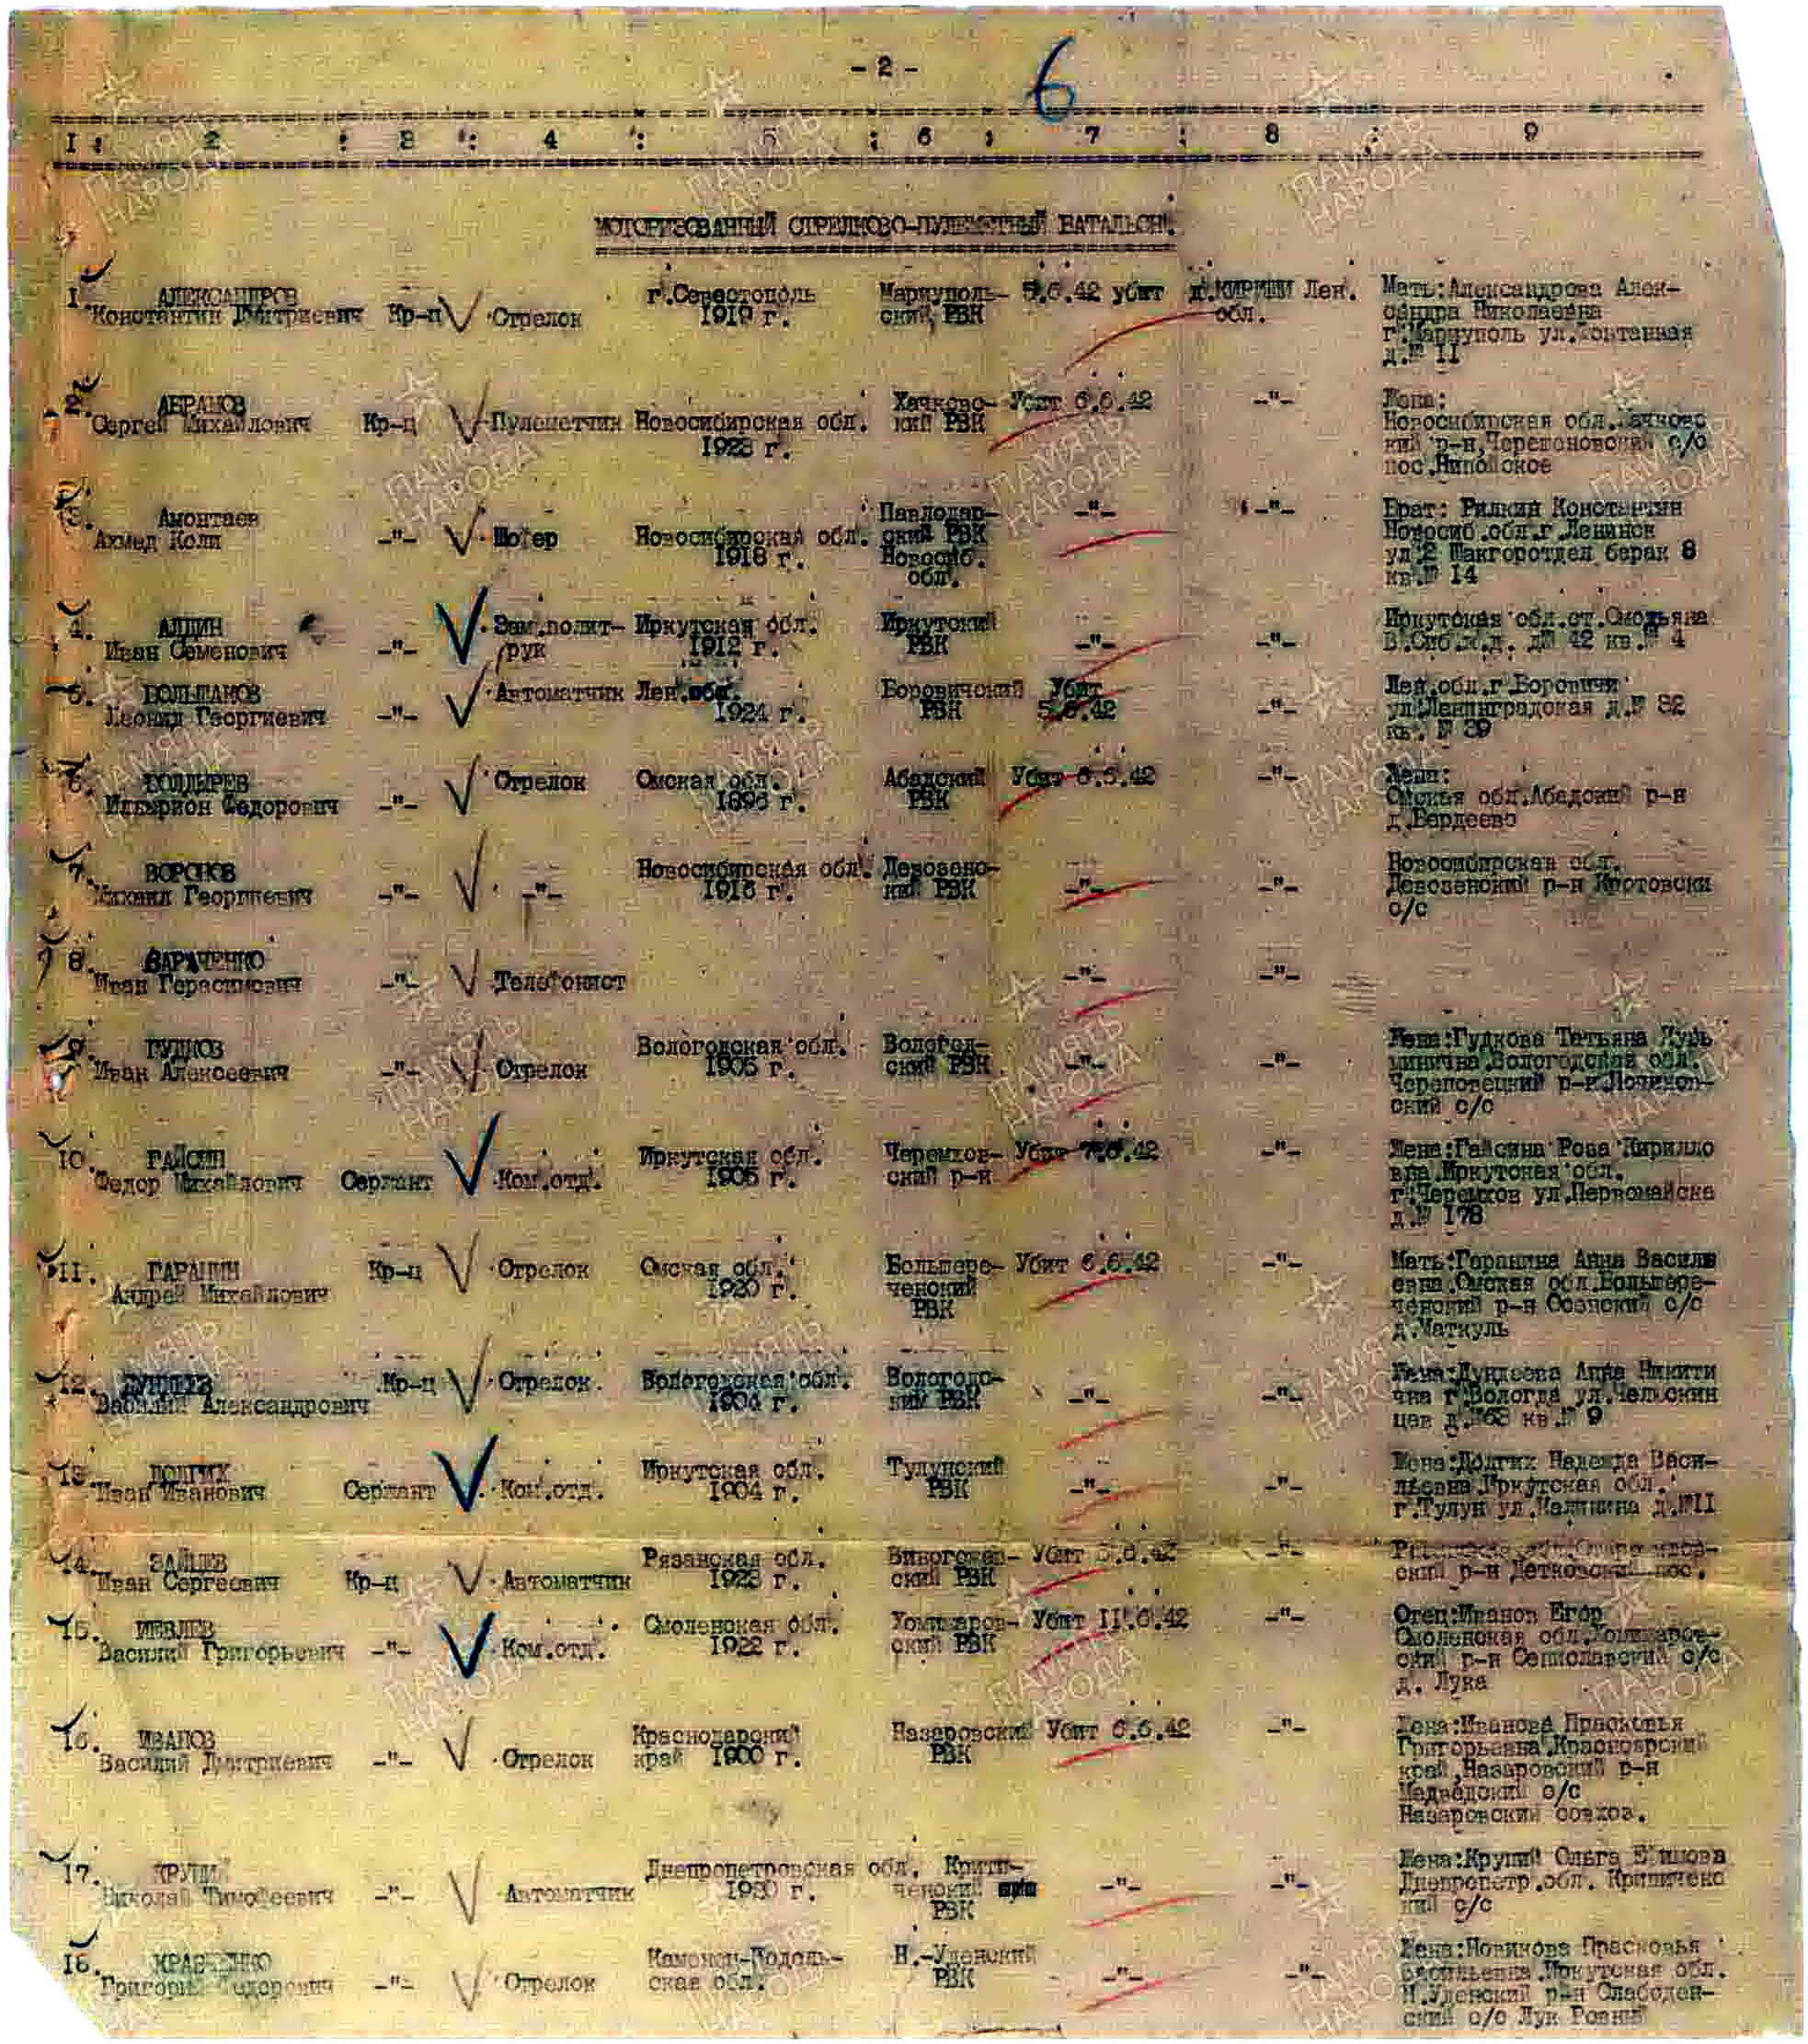 - 2 -
6
I : 2 : 3 : 4 : 5 : 6 : 7 : 8 : 9
МОТОРИЗОВАННЫЙ СТРЕЛКОВО-ПУЛЕМЕТНЫЙ БАТАЛЬОН.
I. АЛЕКСАНДРОВ г.Севастополь Мариуполь- 5.6.42 убит д.КИРИШИ Лен. Мать:Александрова Алек-
Константин Дмитриевич Кр-ц Стрелок 1919 г. ский РВК обл. сандра Николаевна
г.Мариуполь ул.
д.№ II
2. АБРАМОВ Хачковс- Убит 6.6.42 -"- Жена:
Сергей Михайлович Кр-ц Пулеметчик Новосибирская обл. кий РВК Новосибирская обл.
1923 г. кий р-н,Черепоновский с/с
пос.
3. Амонтаев Павлодар- -"- -"- Брат: Рилкин Константин
Ахмед Коли -"- Шофер Новосибирская обл. ский РВК Новосиб.обл.г.Ленинск
1918 г. Новосиб. ул.2 Шахгоротдел барак 8
обл. кв.№ 14
4. АЛДИН Зам.полит- Иркутская обл. Иркутский Иркутская обл.ст.
Иван Семенович -"- рук 1912 г. РВК -"- -"- В.Сиб.ж.д. д№ 42 кв.№ 4
5. БОЛЬШАКОВ Автоматчик Лен.обл. Боровичский Убит Лен.обл.г.Боровичи
Леонид Георгиевич -"- 1924 г. РВК 5.6.42 -"- ул.Ленинградская д.№ 32
кв. № 39
6. БОЛДЫРЕВ Стрелок Омская обл. Абадский Убит 6.6.42 -"- Жена:
Илларион Федорович -"- 1896 г. РВК Омская обл.Абадский р-н
д.Бердеево
7. ВОРОНОВ Новосибирская обл. Девозенс- Новосибирская обл.
Михаил Георгиевич -"- -"- 1913 г. кий РВК -"- -"- Девозенский р-н Кротовски
с/с
8. ВАРАЧЕНКО -"- -"-
Иван Герасимович -"- Телефонист
9. ГУДКОВ Вологодская обл. Вологод- Жена:Гудкова Татьяна Кузь
Иван Алексеевич -"- Стрелок 1905 г. ский РВК -"- -"- минична.Вологодская обл.
Череповецкий р-н
ский с/с
10. ГАЙСИН Иркутская обл. Черемхов- Убит 7.6.42 -"- Жена:Гайсина Роза Кирилло
Федор Михайлович Сержант Ком.отд. 1905 г. ский р-н вна.Иркутская обл.
г.Черемхов ул.Первомайска
д.№ 178
11. ГАРАНИН Кр-ц Стрелок Омская обл. Большере- Убит 6.6.42 -"- Мать:Горанина Анна Василь
Андрей Михайлович 1920 г. ченский евна.Омская обл.Большере-
РВК ченский р-н с/с
д.Маткуль
12. ДУНДЕЕВ Кр-ц Стрелок Вологодская обл. Вологодс- Жена:Дундеева Анна Никити
Василий Александрович 1904 г. ким РВК -"- -"- чна г.Вологда ул.Челюскин
цев д.№63 кв.№ 9
13. ДОЛГИХ Иркутская обл. Тулунский Жена:Долгих Надежда Васи-
Иван Иванович Сержант Ком.отд. 1904 г. РВК -"- -"- льевна.Иркутская обл.
г.Тулун ул.Калинина д.№II
14. ЗАЙЦЕВ Рязанская обл. Убит -"-
Иван Сергеевич Кр-ц Автоматчик 1923 г. ский РВК ский р-н Летковский пос.
15. ИЕВЛЕВ Смоленская обл. Убит II.6.42 -"- Отец:Иванов Егор
Василий Григорьевич -"- Ком.отд. 1922 г. ский РВК Смоленская обл.
ский р-н с/с
д. Лука
16. ИВАНОВ Краснодарский Назаровский Убит 6.6.42 -"- Жена:Иванова Прасковья
Василий Дмитриевич -"- Стрелок край 1900 г. РВК Григорьевна.Красноярский
край,Назаровский р-н
Медведский с/с
Назаровский совхоз.
17. КРУПИЙ Днепропетровская обл. Крити- Жена:Крупий Ольга Ефимова
Николай Тимофеевич -"- Автоматчик 1920 г. ченский -"- -"- Днепропетр.обл.
РВК кий с/с
18. КРАВЧЕНКО Каменец-Подоль- Н.-Уденский Жена:Новикова Прасковья
Григорий Федорович -"- Стрелок ская обл. РВК -"- -"- Васильевна.Иркутская обл.
Н.Уденский р-н Слабоден-
ский с/с